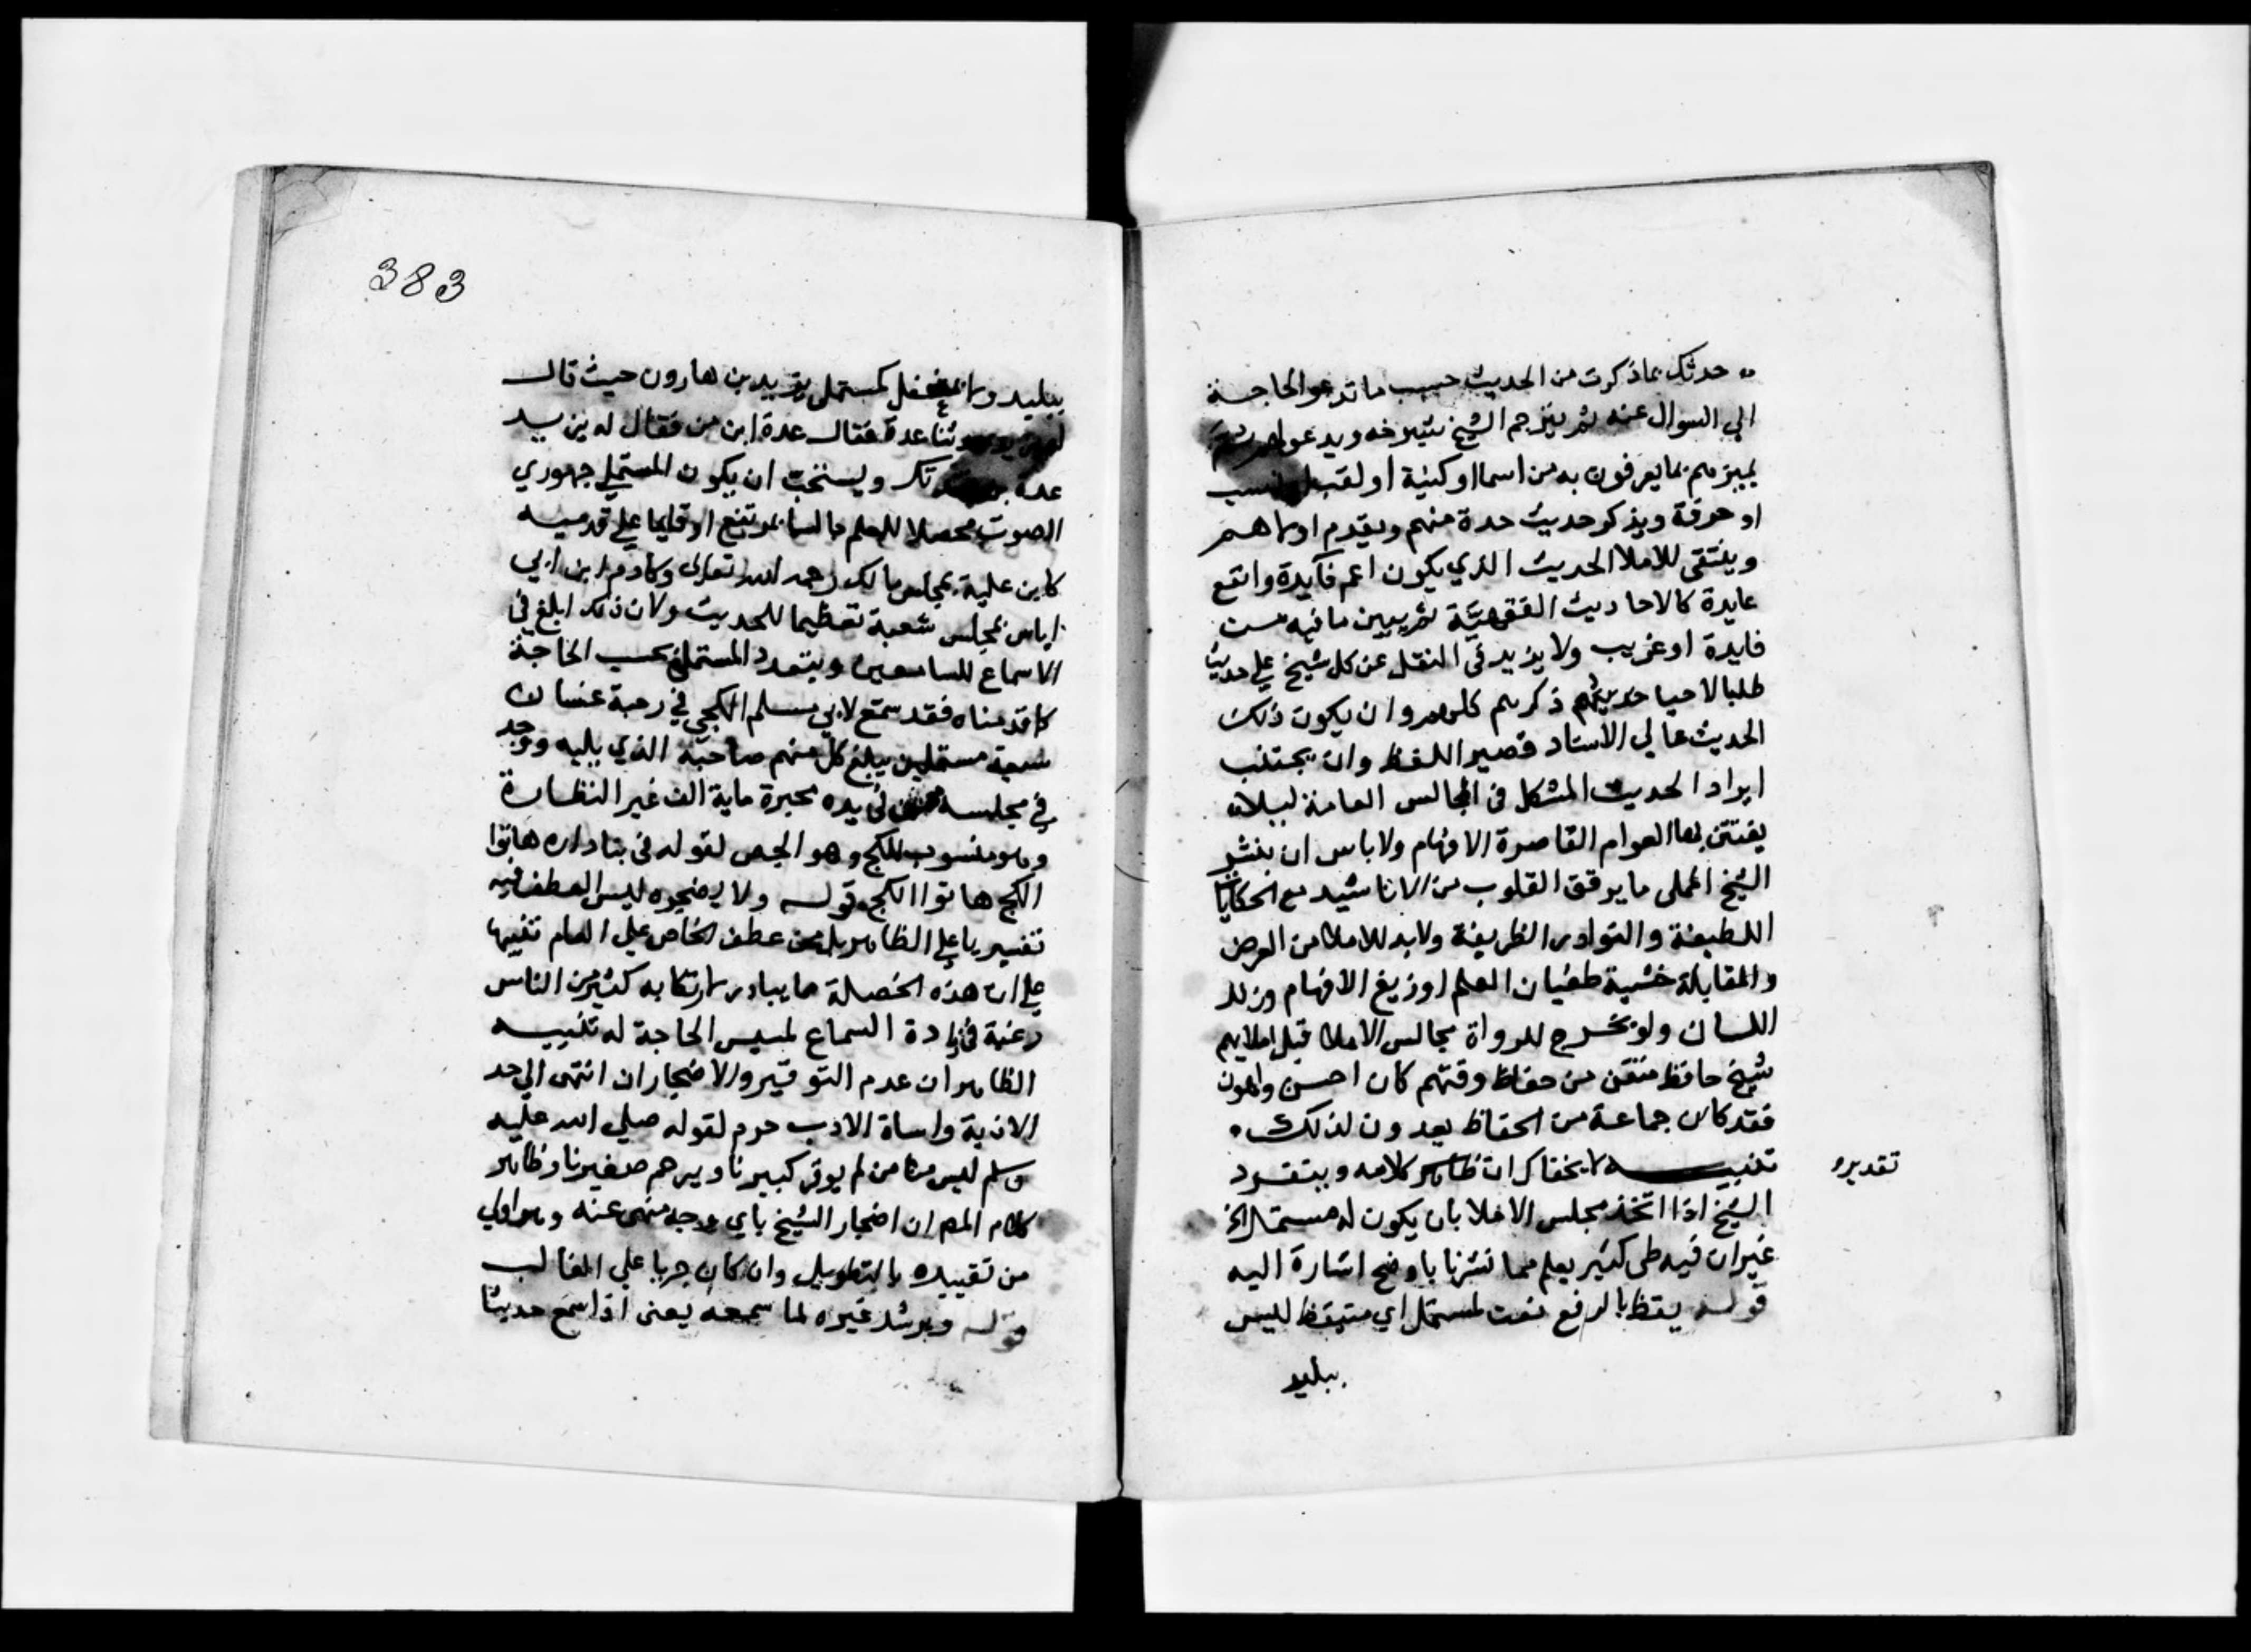 حدثك بماذكرت من الحديث حسب ما تدعو الحاجة
الي السوال عنه ثم يترجم الشيخ شيوخه ويدعو لهم
يميزهم بما يعرفون به من اسما او كنية او لقب او نسب
او حرفة ويذكر حديث حدة منهم ويقدم اولاهم
وينتقى للاملا الحديث الذي يكون اعم فآيدة واتقع
عايدة كالاحاديث الفقهية ثم يبين ما فيه من
فايدة او غريب ولا يزيد في النقل عن كل شيخ علي حديث
طلبا لاحيا حديثهم ذكرهم كلهم وان يكون ذلك
الحديث عالي الاسناد قصير اللفظ وان يجتنب
ايراد الحديث المشكل في المجالس العامة ليلا
يفتتن بها العوام القاصرة الافهام ولا باس ان ينشر
الشيخ المملى ما يرقق القلوب من الاناشيد مع الحكايات
اللطيفة والنوادر الظريفة ولابد للاملا من العرض
والمقابلة خشية طغيان القلم او زيغ الافهام وزلل
اللسان ولو يخرج للرواة مجالس الاملا قبل املايهم
شيخ حافظ متقن من حفاظ وقتهم كان احسن واعون
فقد كان جماعة من الحفاظ يعدون لذلك
تنبيه لا يخفاك ان ظاهر كلامه ويتفرد تقديره
الشيخ اذا اتخذ مجلس الاملا بان يكون له مستمل الخ
غير ان فيه طي كثير يعلم مما نشرنا باوضح اشارة اليه
قوله يقظ بالرفع نعت لمستمل اي متيقظ ليس
ببليد
383
ببليد ولا مغفل كمستملي يزيد بن هارون حيث قال
ثنا عدة فقال عدة ابن من فقال له يزيد
عدة بن ويستحب ان يكون المستملي جهوري
الصوت محصلا للعلم جالسا بمرتفع او قايما علي قدميه
كابن علية بمجلس مالك رحمه الله تعالى وكآدم ابن ابي
اياس بمجلس شعبة تعظيما للحديث ولان ذلك ابلغ في
الاسماع للسامعين ويتعدد المستملي بحسب الحاجة
كما قدمناه فقد سمع لابي مسلم الكجي في رحبة غسان
سبعة مستملين يبلغ كل منهم صاحبه الذي يليه ووجد
في مجلسه من في يده محبرة ماية الف غير النظارة
وهو منسوب للكج وهو الجص لقوله في بنا داره هاتوا
الكج هاتوا الكج قوله ولا يضجره ليس العطف فيه
تفسيريا علي الظاهر بل من عطف الخاص علي العام تنبيها
علي ان هذه الخصلة مما يبادر لارتكابه كثير من الناس
رغبة في زيادة السماع لمسيس الحاجة له تنبيه
الظاهر ان عدم التوقير والاضجار ان انتهى الي حد
الاذية واساة الادب حرم لقوله صلي الله عليه
وسلم ليس منا من لم يوقر كبيرنا ويرحم صغيرنا وظاهر
كلام المص ان اضجار الشيخ باي وجه منهى عنه وهو اولي
من تقييده بالتطويل وان كان جريا علي الغالب
قوله ويرشد غيره لما سمعه يعنى اذا سمع حديثا